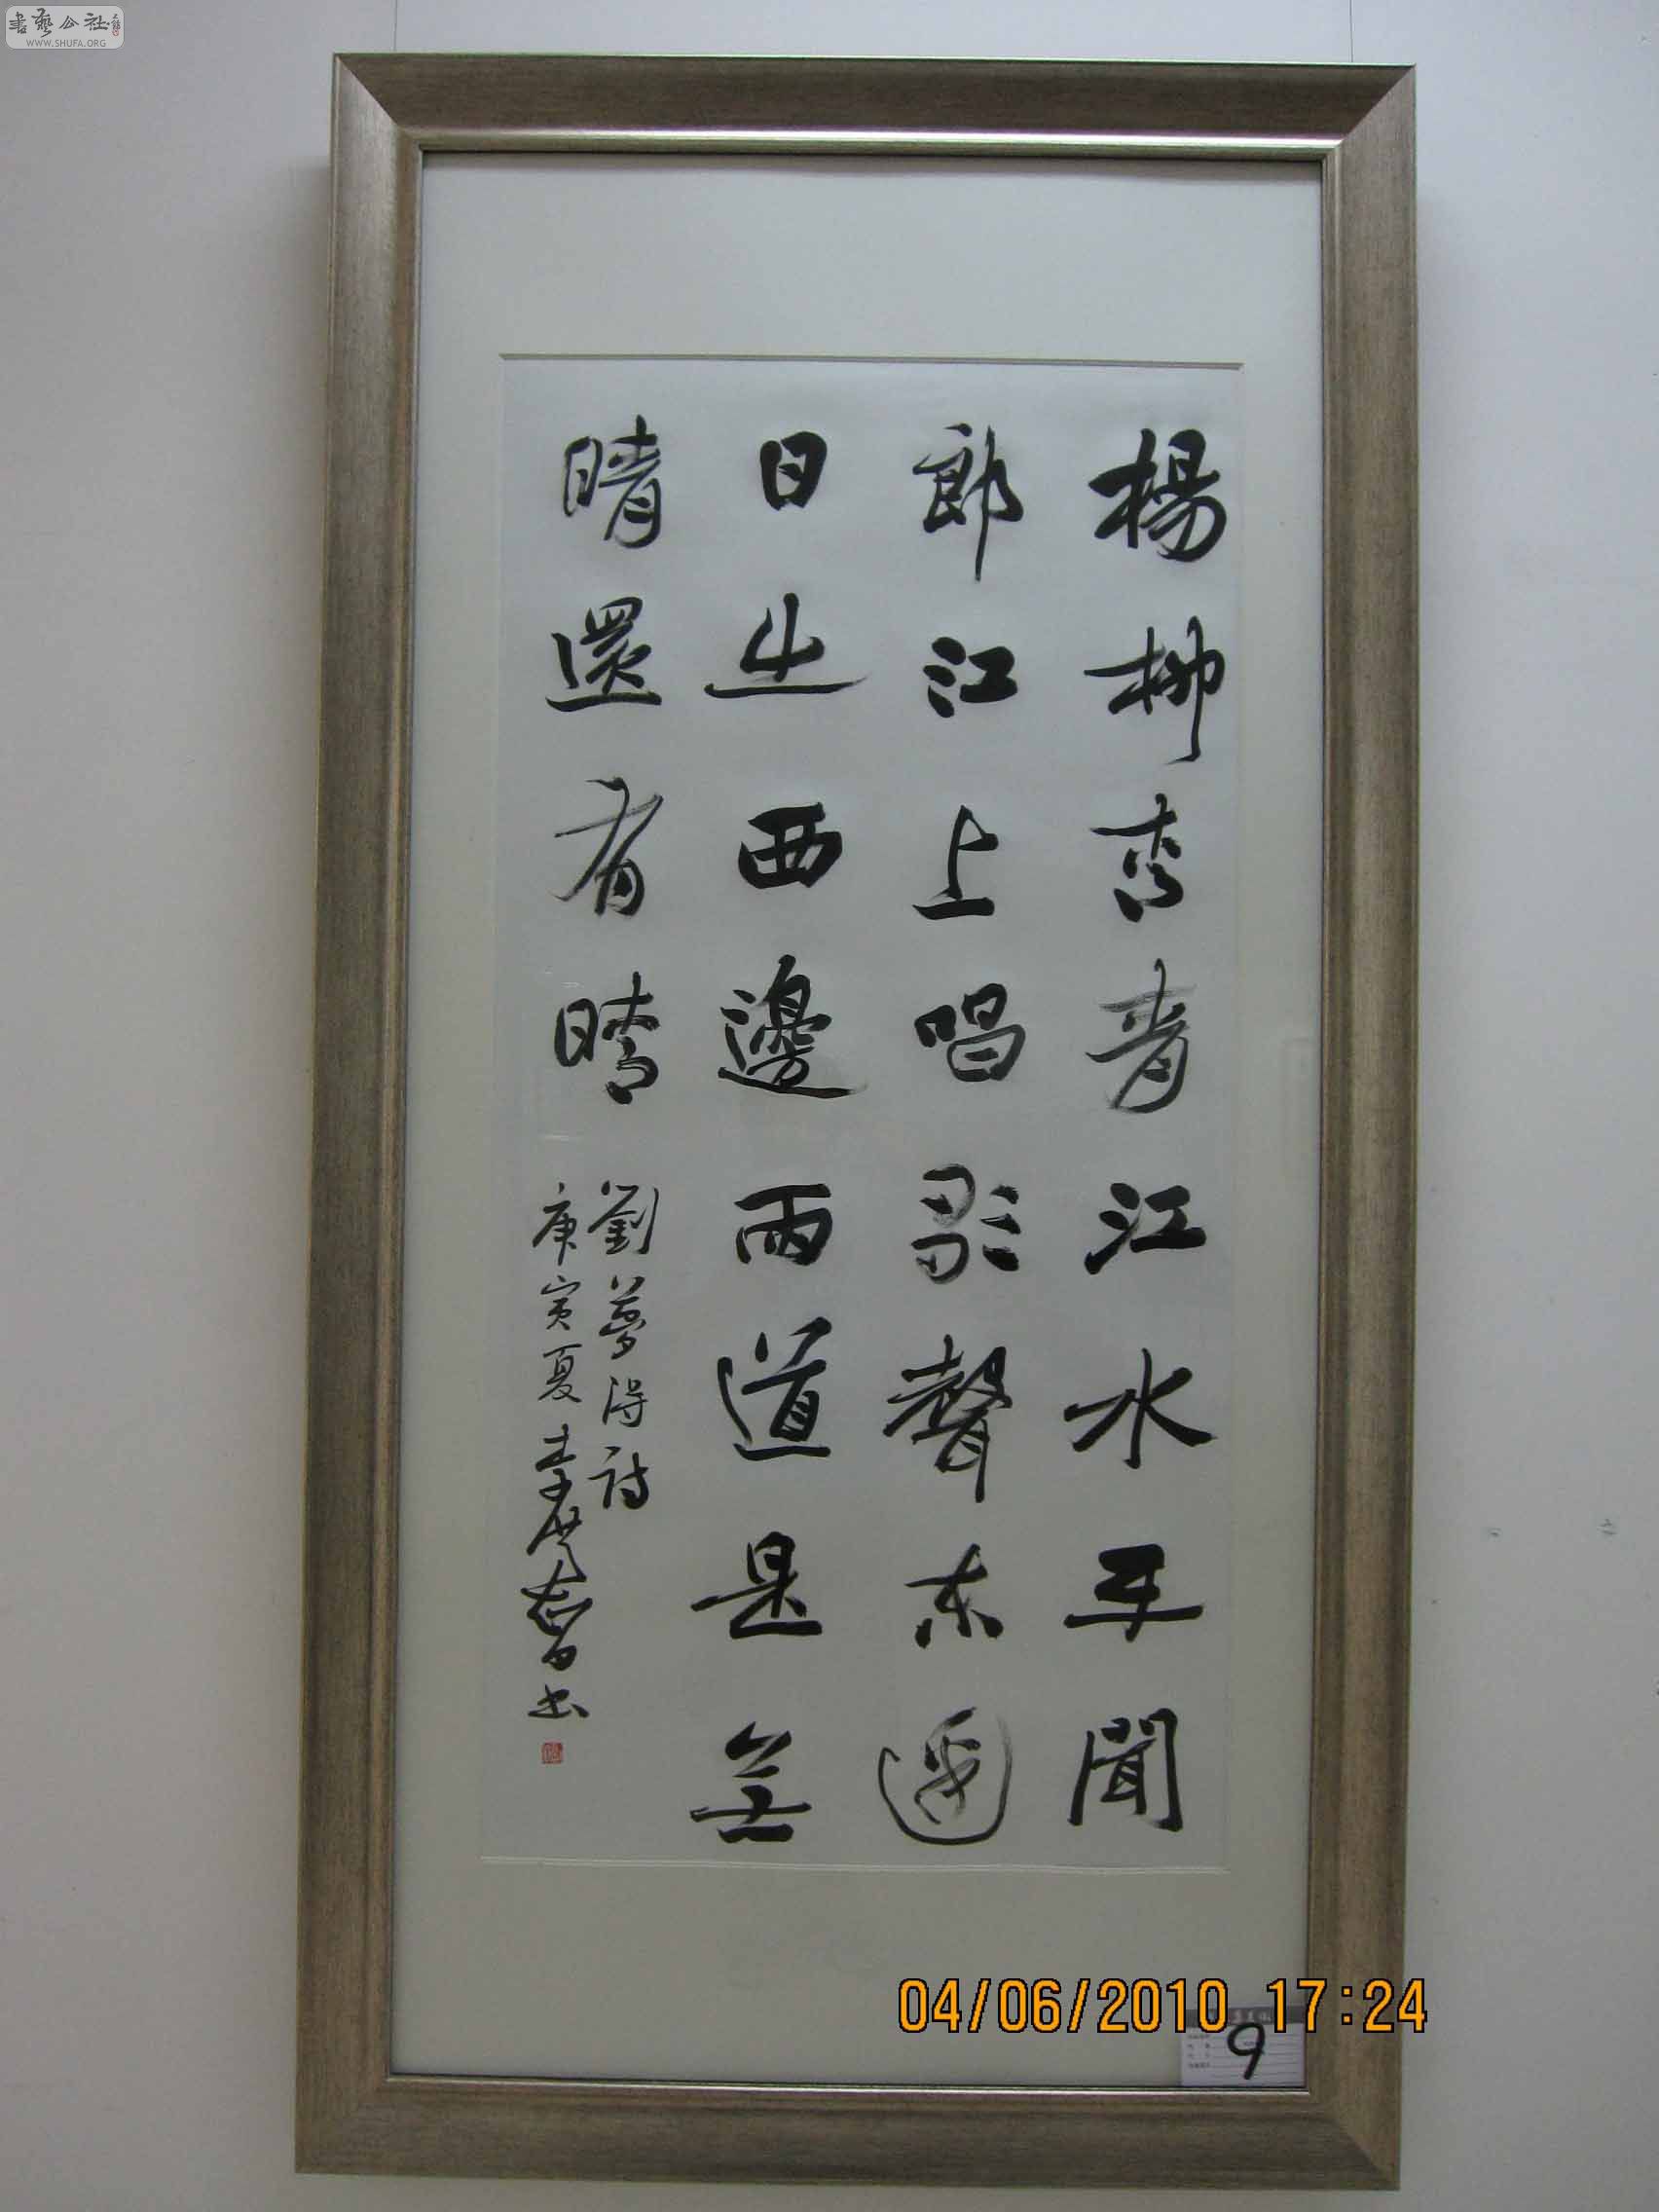 書藝公社
WWW.SHUFA.ORG
楊柳青青江水平聞
郎江上唱歌聲东邊
日出西邊雨道是無
晴還有晴
劉夢得詩
庚寅夏李書
04/06/2010 17:24
9